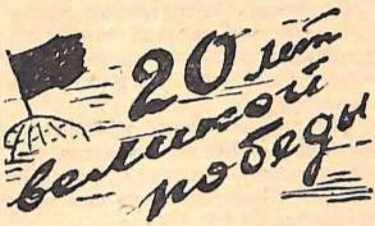 20 лет
великой
победы